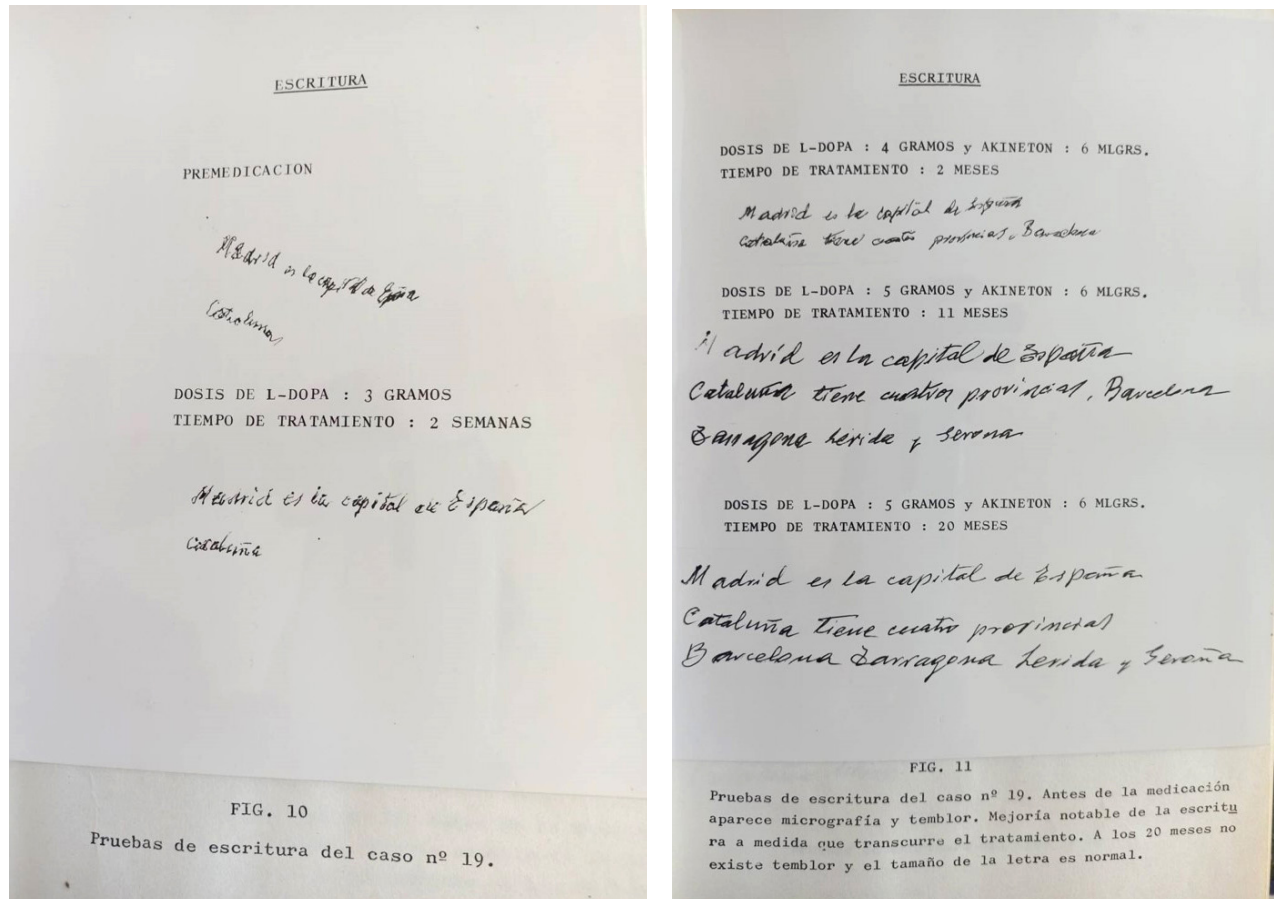 ESCRITURA
PREMEDICACION
Madrid es la capital de España
DOSIS DE L-DOPA : 3 GRAMOS
TIEMPO DE TRATAMIENTO : 2 SEMANAS
Madrid es la capital de España
Cataluña
FIG. 10
Pruebas de escritura del caso nº 19.
ESCRITURA
DOSIS DE L-DOPA : 4 GRAMOS y AKINETON : 6 MLGRS.
TIEMPO DE TRATAMIENTO : 2 MESES
Madrid es la capital de España
Cataluña tiene cuatro provincias, Barcelona
DOSIS DE L-DOPA : 5 GRAMOS y AKINETON : 6 MLGRS.
TIEMPO DE TRATAMIENTO : 11 MESES
Madrid es la capital de España
Cataluña tiene cuatros provincias, Barcelona
Tarragona Lérida y Gerona
DOSIS DE L-DOPA : 5 GRAMOS y AKINETON : 6 MLGRS.
TIEMPO DE TRATAMIENTO : 20 MESES
Madrid es la capital de España
Cataluña tiene cuatro provincias
Barcelona Tarragona Lerida y Geroña
FIG. 11
Pruebas de escritura del caso nº 19. Antes de la medicación
aparece micrografía y temblor. Mejoría notable de la escritu
ra a medida que transcurre el tratamiento. A los 20 meses no
existe temblor y el tamaño de la letra es normal.